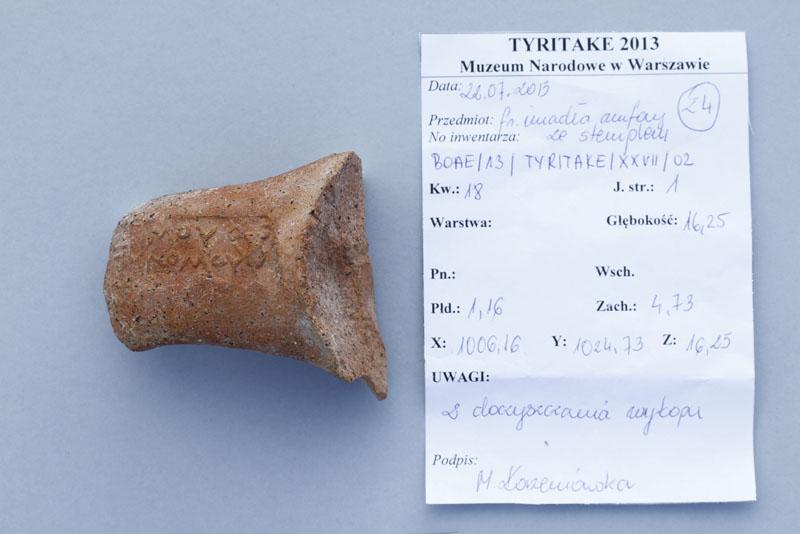 TYRITAKE 2013
Muzeum Narodowe w Warszawie
Data: 22.07.2013
24
Przedmiot: fr. imadła amfory
No inwentarza: ze stemplem
BOAE/13/TYRITAKE/XXVII/02
Kw.: 18 J. str.: 1
Warstwa: Głębokość: 16,25
Pn.: Wsch.
Płd.: 1,16 Zach.: 4,73
X: 1006,16 Y: 1024,73 Z: 16,25
UWAGI:
z doczyszczania wykopu
Podpis:
M.